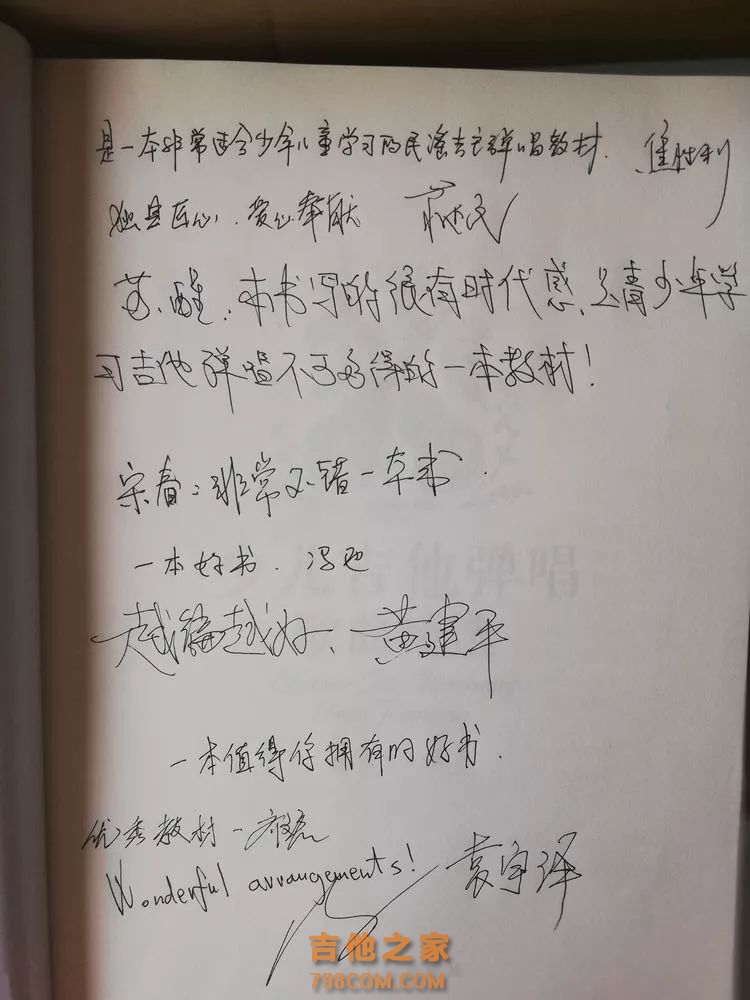 是一本非常适合少年儿童学习的民谣吉它弹唱教材. 焦胜利
独具匠心, 爱心奉献
苏醒: 本书写的很有时代感, 是青少年学
习吉他弹唱不可多得的一本教材!
宋春: 非常不错一本书.
一本好书. 冯地
越编越好、黄建平
一本值得你拥有的好书.
优秀教材 一
Wonderful arrangements! 袁宇泽
儿吉他弹唱
吉他之家
798COM.COM